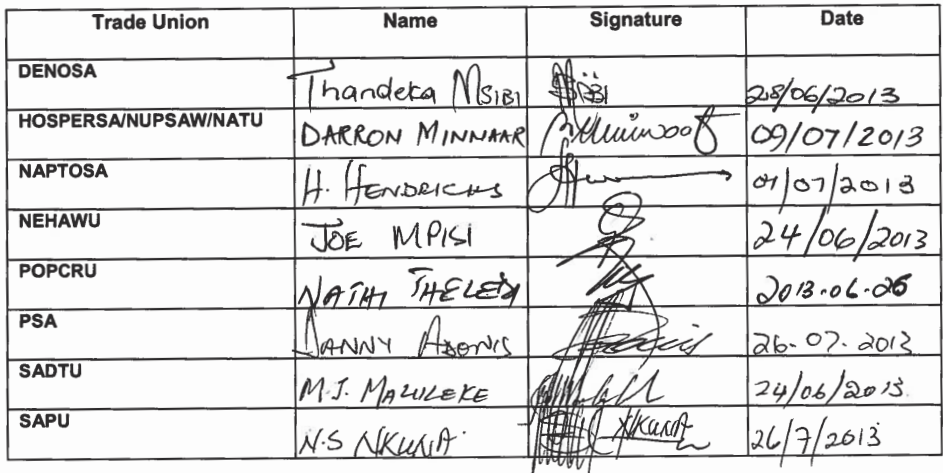 Trade Union Name Signature Date
DENOSA Thandeka Msibi 28/06/2013
HOSPERSA/NUPSAW/NATU DARRON MINNAAR 09/07/2013
NAPTOSA H. HENDRICKS 01/07/2013
NEHAWU JOE MPISI 24/06/2013
POPCRU NATHI THELEDI 2013.06.26
PSA DANNY ADONIS 26-07-2013
SADTU M.J. MALULEKE 24/06/2013
SAPU N.S NKUNA NKUNA 26/7/2013